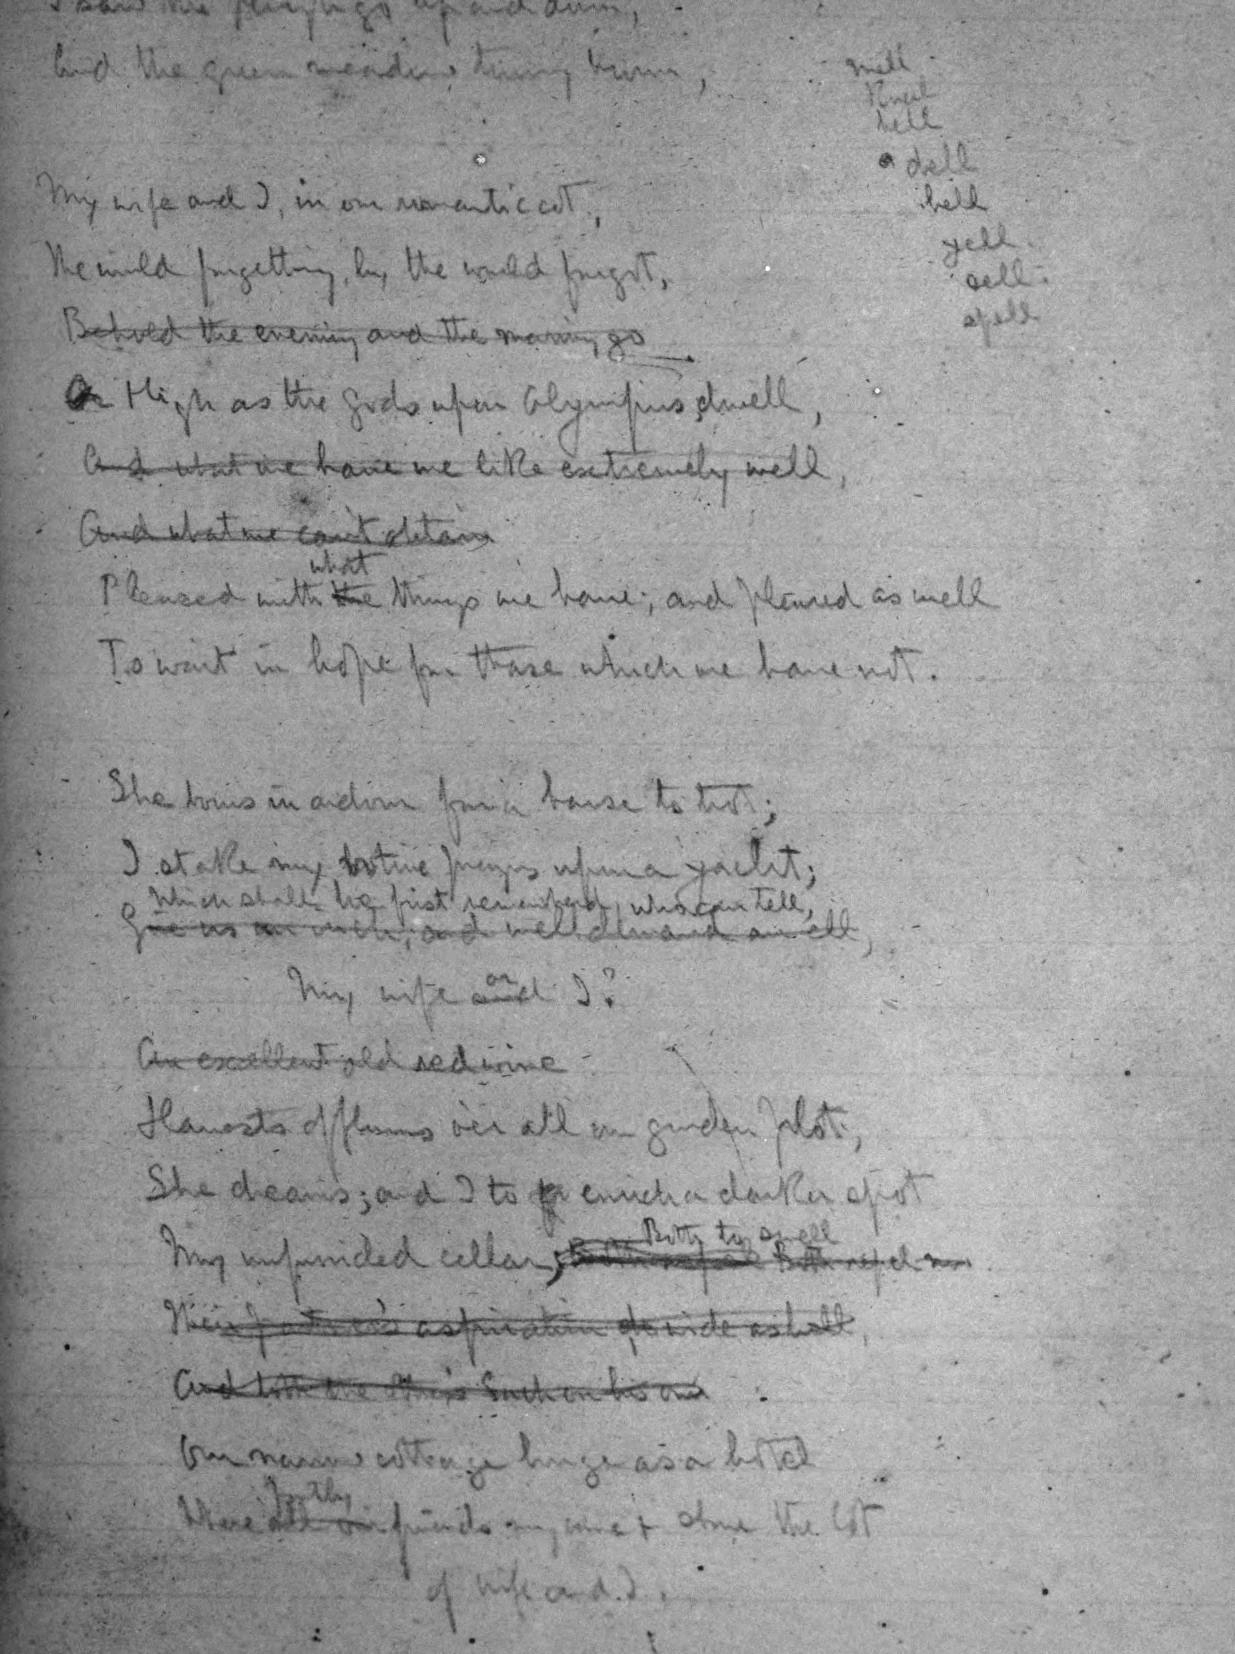 I saw the plough go up and down,
And the green meadow turning brown,
well
knell
hell
dell
bell
yell
sell
spell
My wife and I, in our romantic cot,
The world forgetting, by the world forgot,
Behold the evening and the morning go
High as the gods upon Olympus dwell,
And what we have we like extremely well,
And what we can't obtain
what
Pleased with the things we have; and pleased as well
To wait in hope for those which we have not.
She burns in ardour for a horse to trot;
I stake my votive prayers upon a yacht;
Which shall be first remembered, who can tell,
Give us an inch, and we'll demand an ell,
or
My wife and I?
An excellent old red wine
Harvests of flowers o'er all our garden plot,
She dreams; and I to enrich a darker spot
Both to swell
My unprovided cellar;
aspiration wide as hell,
And both the
Our narrow cottage huge as a hotel
Where all our friends may come & share the lot
of wife and I.